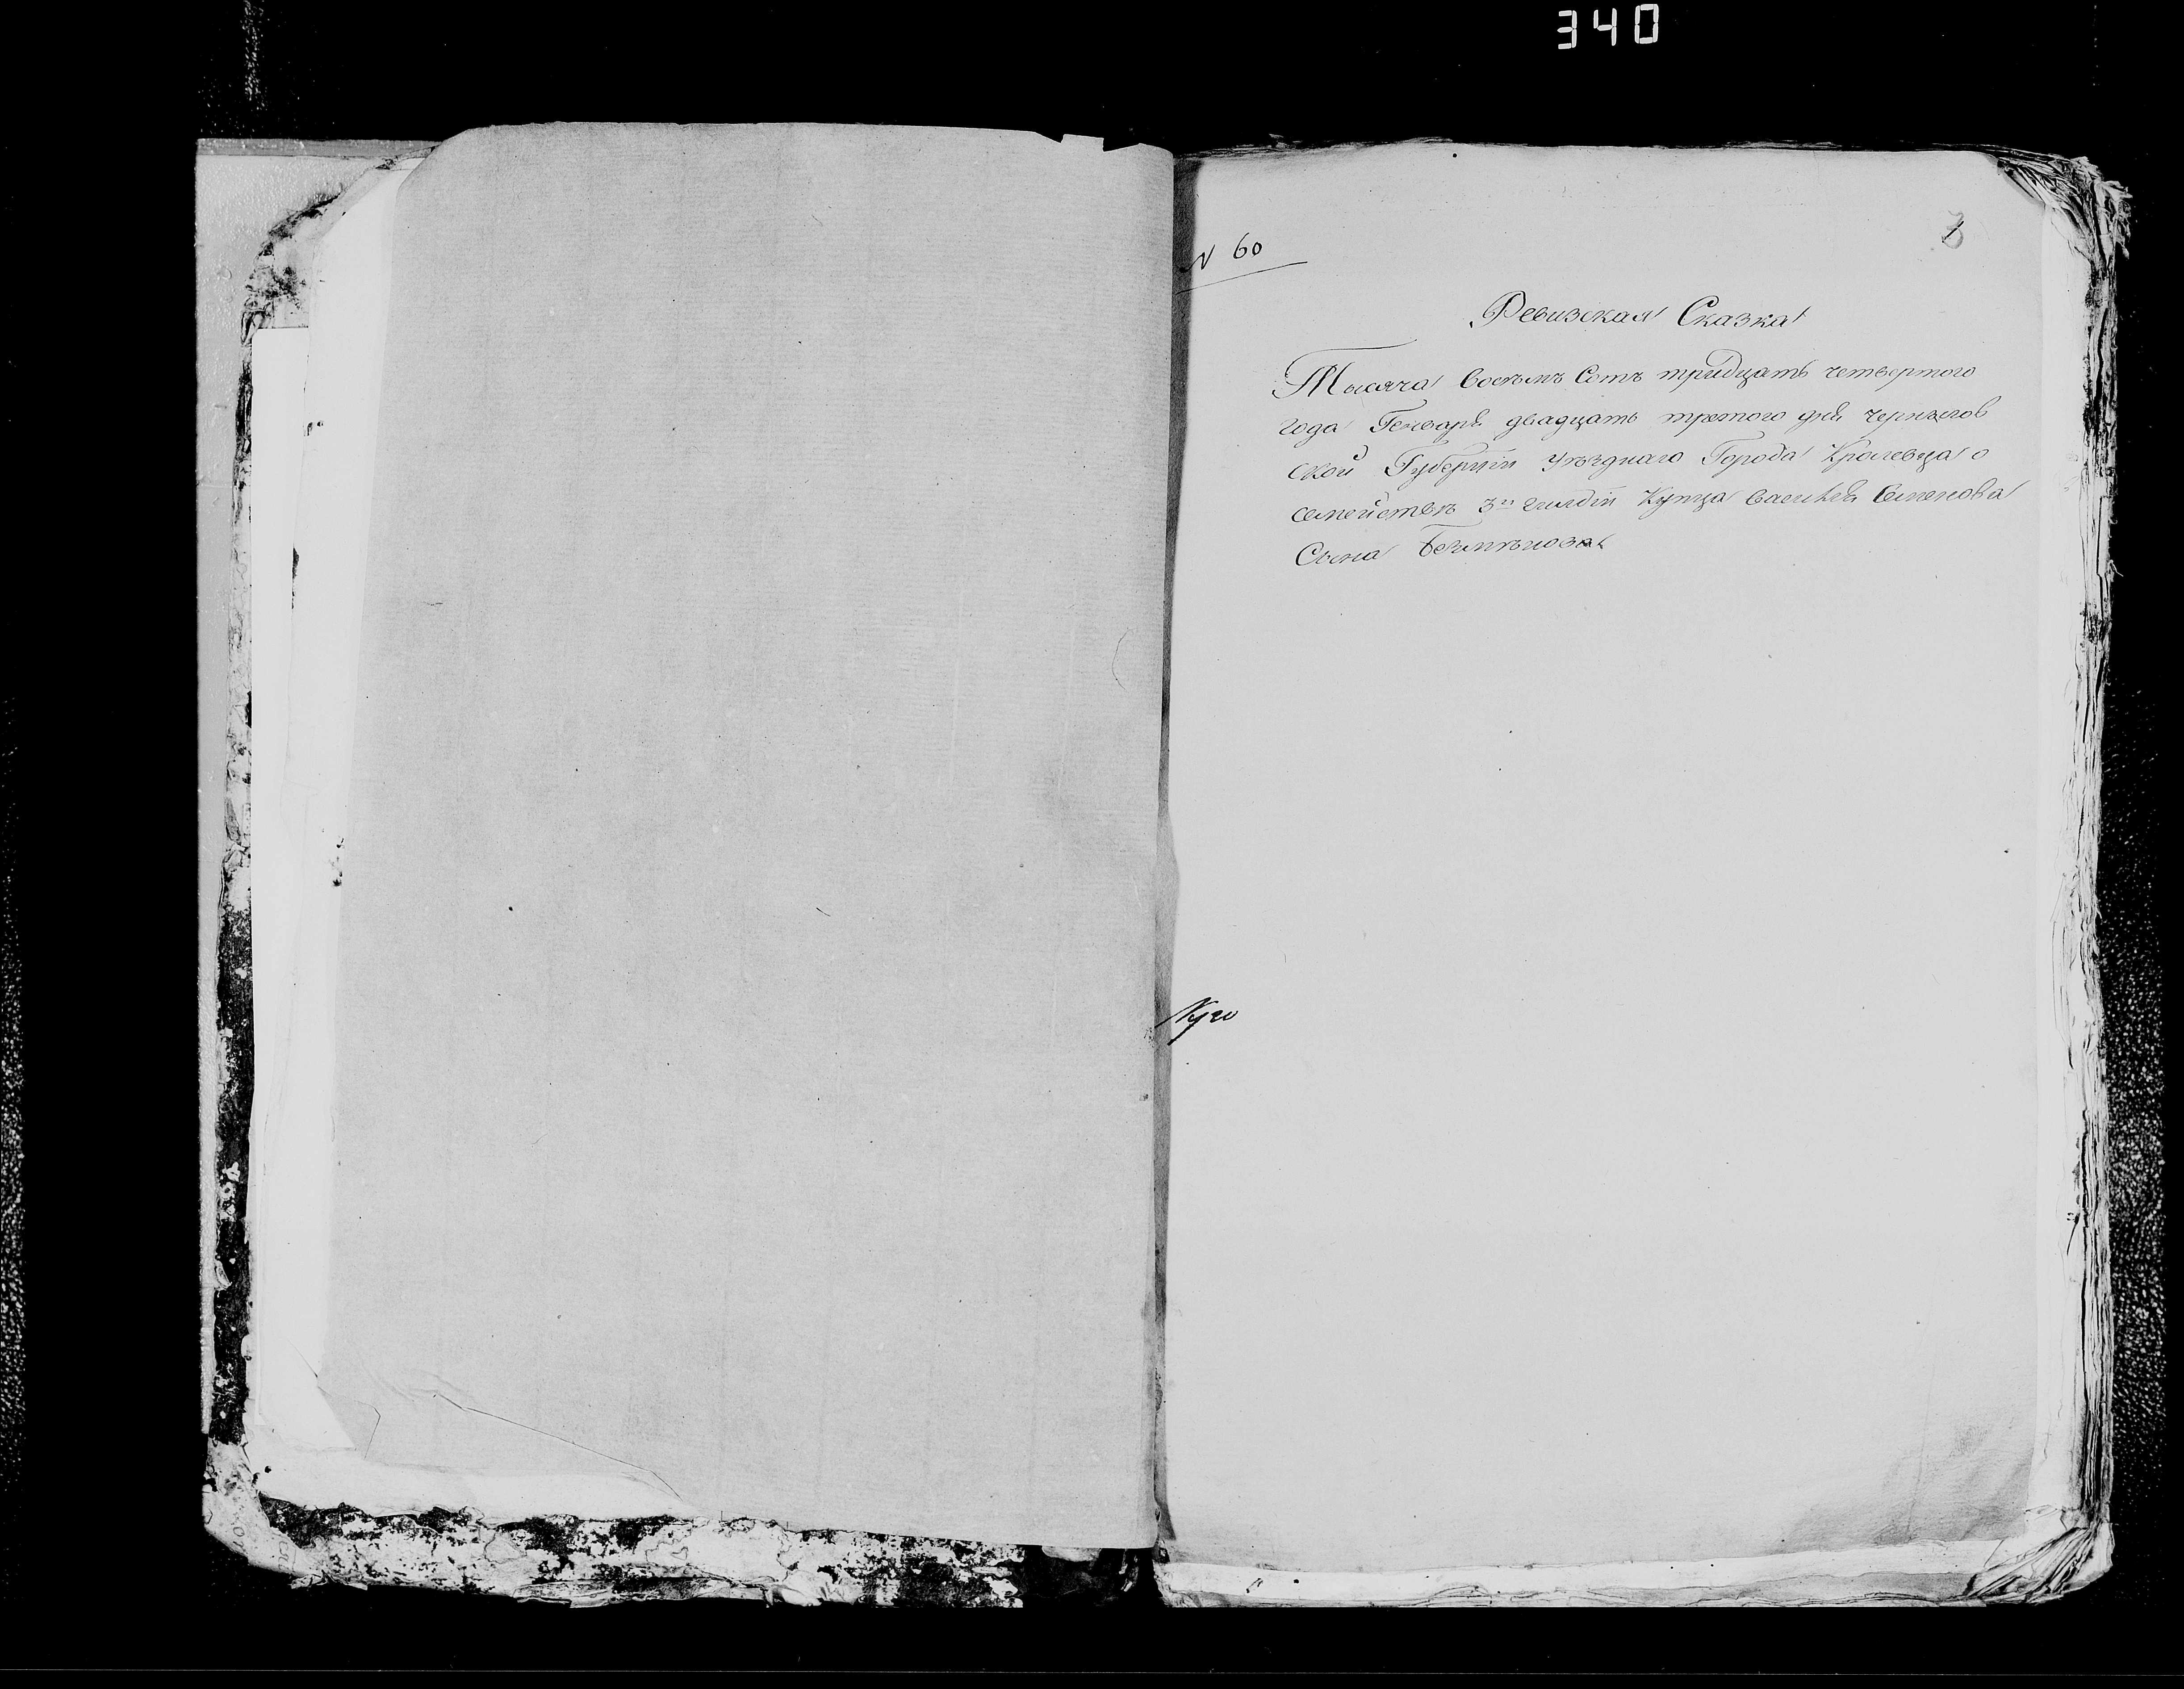 340
N 60
Ревизская Сказка
Тысяча восемь сотъ тридцать четвертого
года Генваря двадцать третого дня Чернѣгов
ской Губернїи уѣзднаго Города Кролевца о
семействѣ 3й гилдїи Купца Василія Семенова
Сына